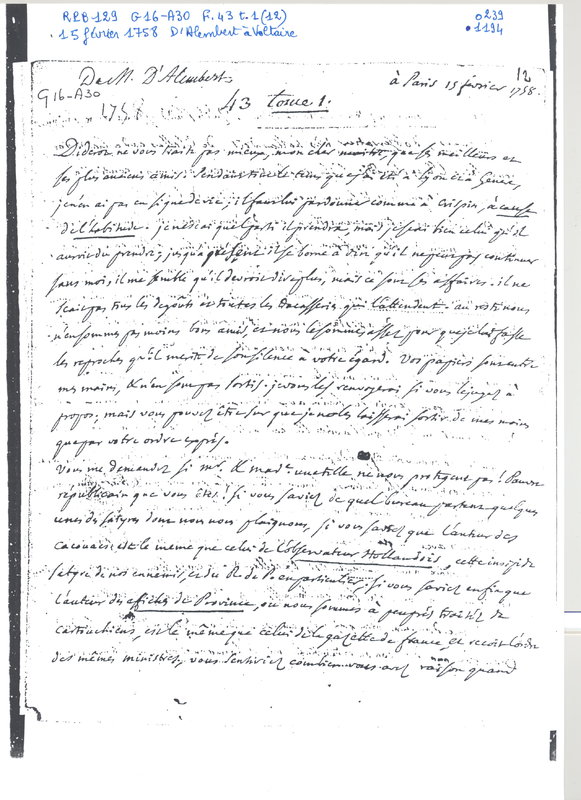 RRB 129 G16-A30 F.43 t.1(12)
15 février 1758 D'Alembert à Voltaire
239
1194
De M. D'Alembert
à Paris 15 février 1758.
12
G16-A30
1758
43 tome 1.
Diderot ne vous traite pas mieux, mon cher maitre, que ses meilleurs et
ses plus anciens amis. Pendant tout le tems que j'ai été à Lyon et à Geneve,
je n'en ai pas eu signe de vie, il faut lui pardonner comme à Crispin, à cause
de l'habitude. je ne sai quel parti il prendra, mais je sai bien celui qu'il
auroit du prendre; jusqu'à présent il se borne à dire qu'il ne peut pas continuer
sans moi, il me semble qu'il devroit dire plus, mais ce sont ses affaires. il ne
scait pas tous les degoûts et toutes les tracasseries qui l'attendent. au reste nous
n'en sommes pas moins bons amis, et nous le sommes assez pour que je lui fasse
les reproches qu'il merite de son silence à votre égard. Vos papiers sont entre
mes mains, & n'en sont pas sortis. je vous les renvoyerai si vous le jugez à
propos, mais vous pouvez être sur que je ne les laisserai sortir de mes mains
que par votre ordre exprès.
Vous me demandez si mr. & made. une telle ne nous protegent pas! Pauvre
républicain que vous êtes! si vous saviez de quel bureau partent quelques
unes des satyres dont nous nous plaignons, si vous saviez que l'auteur des
cacouacs est le meme que celui de l'observateur Hollandois, cette insipide
satyre de nos ennemis, et du R. de P. en particulier, si vous saviez enfin que
l'auteur des affiches de Province, ou nous sommes à peu près traités de
cartouchiens, est le même que celui de la gazette de france, et recoit l'ordre
des mêmes ministres, vous sentiriez combien vous avez raison quand